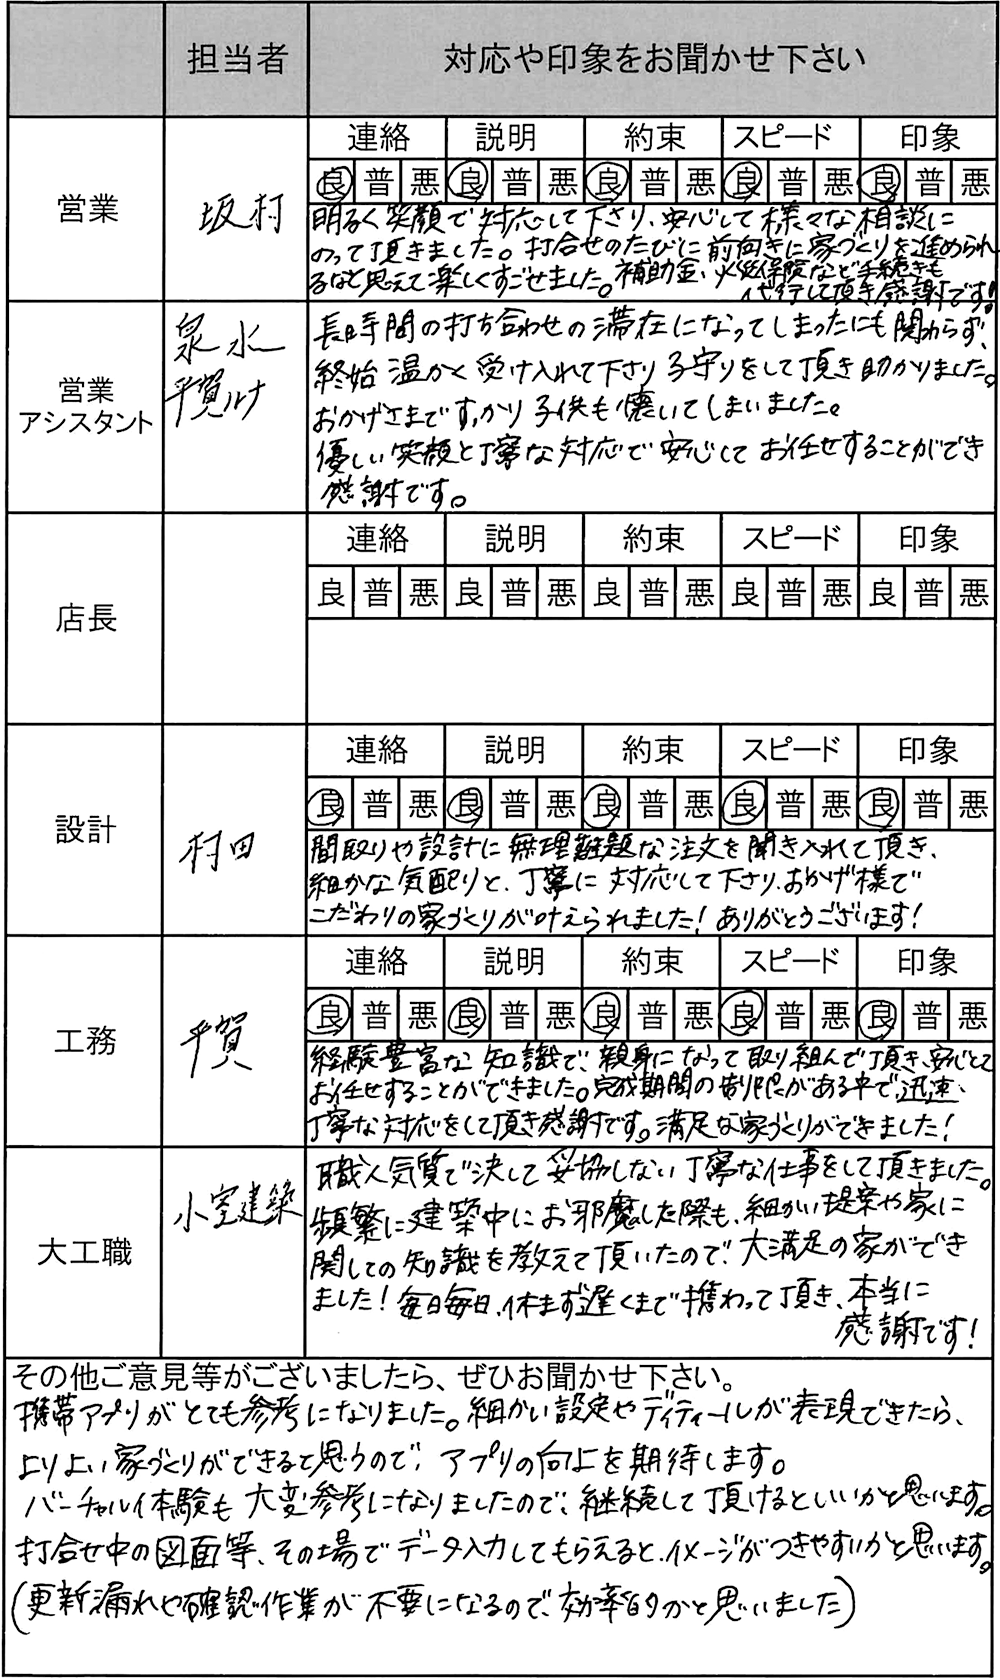 担当者 対応や印象をお聞かせ下さい
連絡 説明 約束 スピード 印象
良 普 悪 良 普 悪 良 普 悪 良 普 悪 良 普 悪
営業 坂村
明るく笑顔で対応して下さり、安心して様々な相談に
のって頂きました。打合せのたびに前向きに家づくりを進められ
るなと思えて楽しくすごせました。補助金、火災保険など手続きも
代行して頂き感謝です!
営業
アシスタント
泉水
平賀ルナ
長時間の打ち合わせの滞在になってしまったにも関わらず、
終始温かく受け入れて下さり子守りをして頂き助かりました。
おかげさまですっかり子供も懐いてしまいました。
優しい笑顔と丁寧な対応で安心してお任せすることができ
感謝です。
連絡 説明 約束 スピード 印象
良 普 悪 良 普 悪 良 普 悪 良 普 悪 良 普 悪
店長
連絡 説明 約束 スピード 印象
良 普 悪 良 普 悪 良 普 悪 良 普 悪 良 普 悪
設計 村田
間取りや設計に無理難題な注文を聞き入れて頂き、
細かな気配りと、丁寧に対応して下さり、おかげ様で
こだわりの家づくりが叶えられました!ありがとうございます!
連絡 説明 約束 スピード 印象
良 普 悪 良 普 悪 良 普 悪 良 普 悪 良 普 悪
工務 平賀
経験豊富な知識で、親身になって取り組んで頂き、安心して
お任せすることができました。完成期間の制限がある中で、迅速、
丁寧な対応をして頂き感謝です。満足な家づくりができました!
大工職 小室建築
職人気質で決して妥協しない丁寧な仕事をして頂きました。
頻繁に建築中にお邪魔した際も、細かい提案や家に
関しての知識を教えて頂いたので、大満足の家ができ
ました!毎日毎日、休まず遅くまで携わって頂き、本当に
感謝です!
その他ご意見等がございましたら、ぜひお聞かせ下さい。
携帯アプリがとても参考になりました。細かい設定やディティールが表現できたら、
よりよい家づくりができると思うので、アプリの向上を期待します。
バーチャルイ体験も大変参考になりましたので、継続して頂けるといいかと思います。
打合せ中の図面等、その場でデータ入力してもらえると、イメージがつきやすいかと思います。
(更新漏れや確認作業が不要になるので、効率的かと思いました)